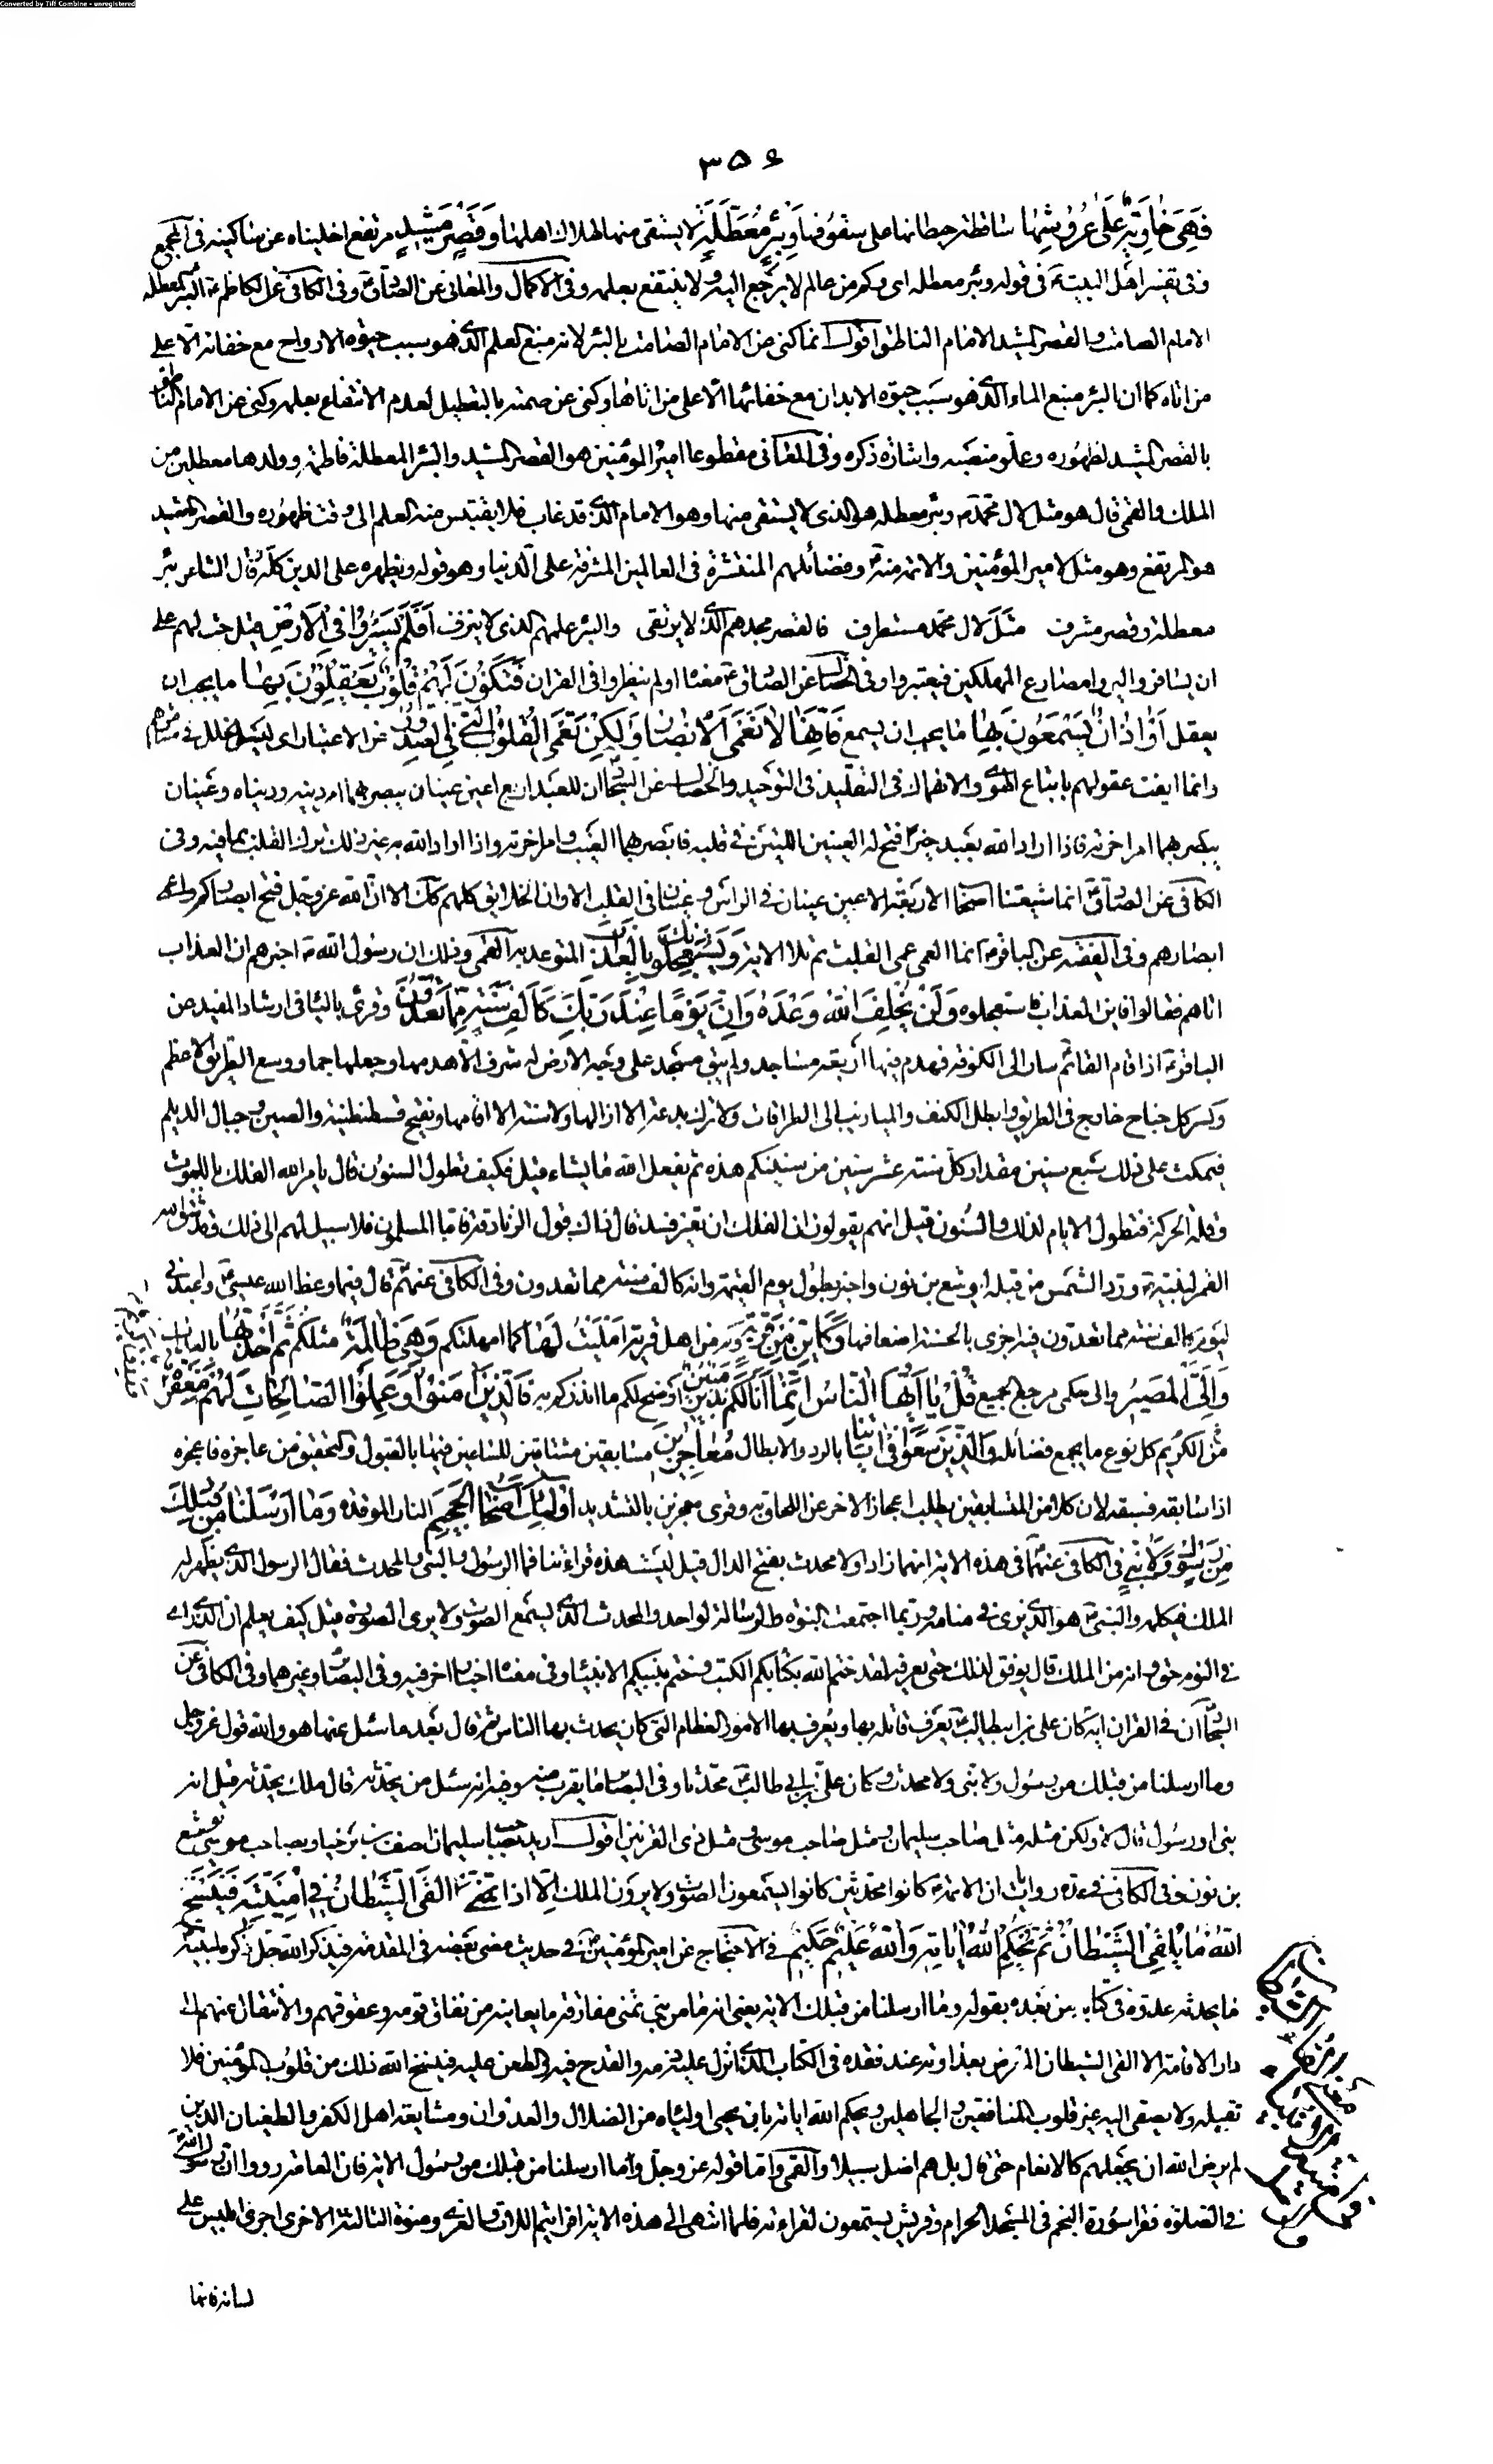 Converted by Tiff Combine - unregistered
٣٥٦
فَهِيَ خاوِيَةٌ عَلى عُرُوشِها ساقطة حيطانها على سقوفها وَبِئْرٍ مُعَطَّلَةٍ لا يستقى منها لهلاك اهلها وَقَصْرٍ مَشِيدٍ مرتفع اخليناه عن ساكنيه فى المجمع
وفى تفسير اهل البيت ع فى قوله وبئر معطلة اى وكم من عالم لا يرجع اليه ولا ينتفع بعلمه وفى الاكمال والمعانى عن الصادق ع وفى الكافى عن الكاظم ع البئر المعطلة
الامام الصامت والقصر المشيد الامام الناطق اقول انما كنى عن الامام الصامت بالبئر لانه منبع العلم الذى هو سبب حيوة الارواح مع خفائه الا على
من اتاه كما ان البئر منبع الماء الذى هو سبب حيوة الابدان مع خفائها الا على من اتاها وكنى عن صمته بالتعطيل لعدم الانتفاع بعلمه وكنى عن الامام الناطق
بالقصر المشيد لظهوره وعلو منصبه واشارة ذكره وفى المعانى مقطوعا امير المؤمنين هو القصر المشيد والبئر المعطلة فاطمة وولدها معطلين من
الملك والقمى قال هو مثل لال محمد ص وبئر معطلة هو الذى لا يستقى منها وهو الامام الذى قد غاب فلا يقتبس منه العلم الى وقت ظهوره والقصر المشيد
هو المرتفع وهو مثل لامير المؤمنين والائمة منه وفضائلهم المنتشرة فى العالمين المشرفة على الدنيا وهو قوله ليظهره على الدين كله قال الشاعر بئر
معطلة وقصر مشرف مثل لال محمد مستطرف فالقصر مجدهم الذى لا يرتقى والبئر علمهم الذى لا ينزف أَفَلَمْ يَسِيرُوا فِي الْأَرْضِ قيل حث لهم على
ان يسافروا ليروا مصارع المهلكين فيعتبروا وفى الخصال عن الصادق ع معناه او لم ينظروا فى القران فَتَكُونَ لَهُمْ قُلُوبٌ يَعْقِلُونَ بِها ما يجب ان
يعقل أَوْ آذانٌ يَسْمَعُونَ بِها ما يجب ان يسمع فَإِنَّها لا تَعْمَى الْأَبْصارُ وَلكِنْ تَعْمَى الْقُلُوبُ الَّتِي فِي الصُّدُورِ عن الاعتبار اى ليس الخلل فى مشاعرهم
وانما ايفت عقولهم باتباع الهوى والانهماك فى التقليد فى التوحيد والخصال عن السجاد ان للعبد اربع اعين عينان يبصر بهما امر دينه ودنياه وعينان
يبصر بهما امر اخرته فاذا اراد الله بعبد خيرا فتح له العينين اللتين فى قلبه فابصر بهما الغيب وامر اخرته واذا اراد الله به غير ذلك ترك القلب بما فيه وفى
الكافى عن الصادق ع انما شيعتنا اصحاب الاربعة الاعين عينان فى الراس وعينان فى القلب الا وان الخلايق كلهم كذلك الا ان الله عز وجل فتح ابصاركم واعمى
ابصارهم وفى الفقيه عن الباقر ع انما العمى عمى القلب ثم تلا الاية وَيَسْتَعْجِلُونَكَ بِالْعَذابِ المتوعد به القمى وذلك ان رسول الله ص اخبرهم ان العذاب
اتاهم فقالوا فاين العذاب فاستعجلوه وَلَنْ يُخْلِفَ اللَّهُ وَعْدَهُ وَإِنَّ يَوْماً عِنْدَ رَبِّكَ كَأَلْفِ سَنَةٍ مِمَّا تَعُدُّونَ وقرئ بالياء فى ارشاد المفيد عن
الباقر ع اذا قام القائم سار الى الكوفة فهدم فيها اربعة مساجد ولم يبق مسجد على وجه الارض له شرف الا هدمها وجعلها جما ووسع الطريق الاعظم
وكسر كل جناح خارج فى الطريق وابطل الكنف والميازيب الى الطرقات ولا ترك بدعة الا ازالها ولا سنة الا اقامها ويفتح قسطنطنية والصين وجبال الديلم
فيمكث على ذلك سبع سنين مقدار كل سنة عشر سنين من سنينكم هذه ثم يفعل الله ما يشاء قيل فكيف تطول السنون قال يامر الله الفلك باللبوث
وقلة الحركة فتطول الايام لذلك والسنون قيل انهم يقولون ان الفلك ان تغير فسد قال ذاك قول الزنادقة فاما المسلمون فلا سبيل لهم الى ذلك وقد شق الله
القمر لنبيه ص ورد الشمس من قبله ليوشع بن نون واخبر بطول يوم القيمة وانه كالف سنة مما تعدون وفى الكافى عنهم ع قال فيما وعظ الله عيسى ع واعبدنى
ليوم كالف سنة مما تعدون فيه اجزى بالحسنة اضعافها وَكَأَيِّنْ مِنْ قَرْيَةٍ وكم من اهل قرية أَمْلَيْتُ لَها كما امهلتكم وَهِيَ ظالِمَةٌ مثلكم ثُمَّ أَخَذْتُها بالعذاب
وَإِلَيَّ الْمَصِيرُ والى حكمى مرجع الجميع قُلْ يا أَيُّهَا النَّاسُ إِنَّما أَنَا لَكُمْ نَذِيرٌ مُبِينٌ اوضح لكم ما انذركم به فَالَّذِينَ آمَنُوا وَعَمِلُوا الصَّالِحاتِ لَهُمْ مَغْفِرَةٌ
من الكريم كل نوع ما يجمع فضائله وَالَّذِينَ سَعَوْا فِي آياتِنا بالرد والابطال مُعاجِزِينَ مسابقين مشاقين للساعين فيها بالقبول والتحقيق من عاجزه فاعجزه
اذا سابقه فسبقه لان كلا من المتسابقين يطلب اعجاز الاخر عن اللحاق به وقرى معجزين بالتشديد أُولئِكَ أَصْحابُ الْجَحِيمِ النار الموقدة وَما أَرْسَلْنا مِنْ قَبْلِكَ
مِنْ رَسُولٍ وَلا نَبِيٍّ فى الكافى عنهما ع فى هذه الاية انهما زادا ولا محدث بفتح الدال قيل ليست هذه قراءتنا فما الرسول والنبى والمحدث فقال الرسول الذى يظهر له
الملك فيكلمه والنبى ع هو الذى يرى فى منامه وربما اجتمعت النبوة والرسالة لواحد والمحدث الذى يسمع الصوت ولا يرى الصورة قيل كيف يعلم ان الذى راى
فى النوم حق وانه من الملك قال يوفق لذلك حتى يعرفه لقد ختم الله بكتابكم الكتب وختم بنبيكم الانبياء وفى معناه اخبار اخر فيه وفى البصائر وغيرهما وفى الكافى عن
السجاد ان فى القران اية كان على بن ابيطالب ع يعرف قاتله بها ويعرف بها الامور العظام التى كان يحدث بها الناس ثم قال بعد ما سئل عنها هو والله قول عز وجل
وما ارسلنا من قبلك من رسول ولا نبى ولا محدث وكان على بن ابى طالب ع محدثا وفى البصائر ما يقرب منه وفيه انه سئل من يحدثه قال ملك يحدثه قيل انه
نبى او رسول قال لا ولكن مثله مثل صاحب سليمان ومثل صاحب موسى ومثل ذى القرنين اقول اريد بصاحب سليمان اصف بن برخيا وبصاحب موسى يوشع
بن نون وفى الكافى فى عدة روايات ان الائمة كانوا محدثين كانوا يسمعون الصوت ولا يرون الملك إِلَّا إِذا تَمَنَّى أَلْقَى الشَّيْطانُ فِي أُمْنِيَّتِهِ فَيَنْسَخُ
اللَّهُ ما يُلْقِي الشَّيْطانُ ثُمَّ يُحْكِمُ اللَّهُ آياتِهِ وَاللَّهُ عَلِيمٌ حَكِيمٌ فى الاحتجاج عن امير المؤمنين ع فى حديث مضى بعضه فى المقدمة فيذكر الله جل ذكره لنبيه
ما يحدثه عدوه فى كتابه من بعده بقوله وما ارسلنا من قبلك الاية يعنى انه ما من نبى تمنى مفارقة ما يعاينه من نفاق قومه وعقوقهم والانتقال عنهم الى
دار الاقامة الا القى الشيطان المعرض بعداوته عند فقده فى الكتاب الذى انزل عليه ذمه والقدح فيه والطعن عليه فينسخ الله ذلك من قلوب المؤمنين فلا
تقبله ولا يصغى اليه غير قلوب المنافقين والجاهلين ويحكم الله اياته بان يحمى اولياءه من الضلال والعدوان ومشايعة اهل الكفر والطغيان الذين
لم يرض الله ان يجعلهم كالانعام حتى قال بل هم اضل سبيلا والقمى واما قوله عز وجل وما ارسلنا من قبلك من رسول الاية فان العامة رووا ان رسول الله
فى الصلوة فقرا سورة النجم فى المسجد الحرام وقريش يستمعون لقراءته فلما انتهى الى هذه الاية افرايتم اللات والعزى ومنوة الثالثة الاخرى اجرى ابليس على
لسانه فانها